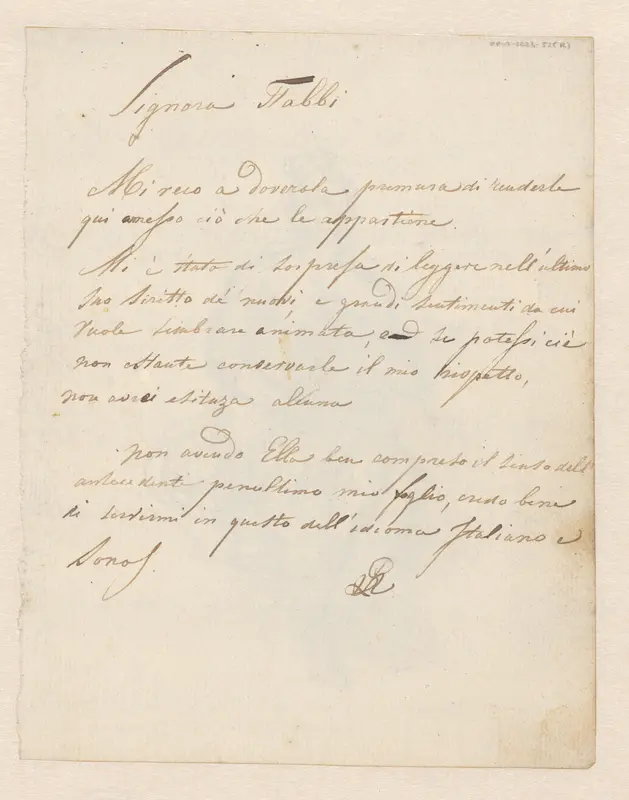 Signora Tabbi
Mi reco a doverosa premura di renderle
qui annesso ciò che le appartiene.
Mi è stato di sorpresa di leggere nell'ultimo
suo de' nuovi, e grandi sentimenti da cui
vuole sembrare animata, e se potessi ciò
non ostante conservarle il mio rispetto,
non avrei esitanza alcuna
Non avendo Ella ben compreso il senso dell'
antecedente penultimo mio foglio, credo bene
di servirmi in questo dell'idioma Italiano e
Sono